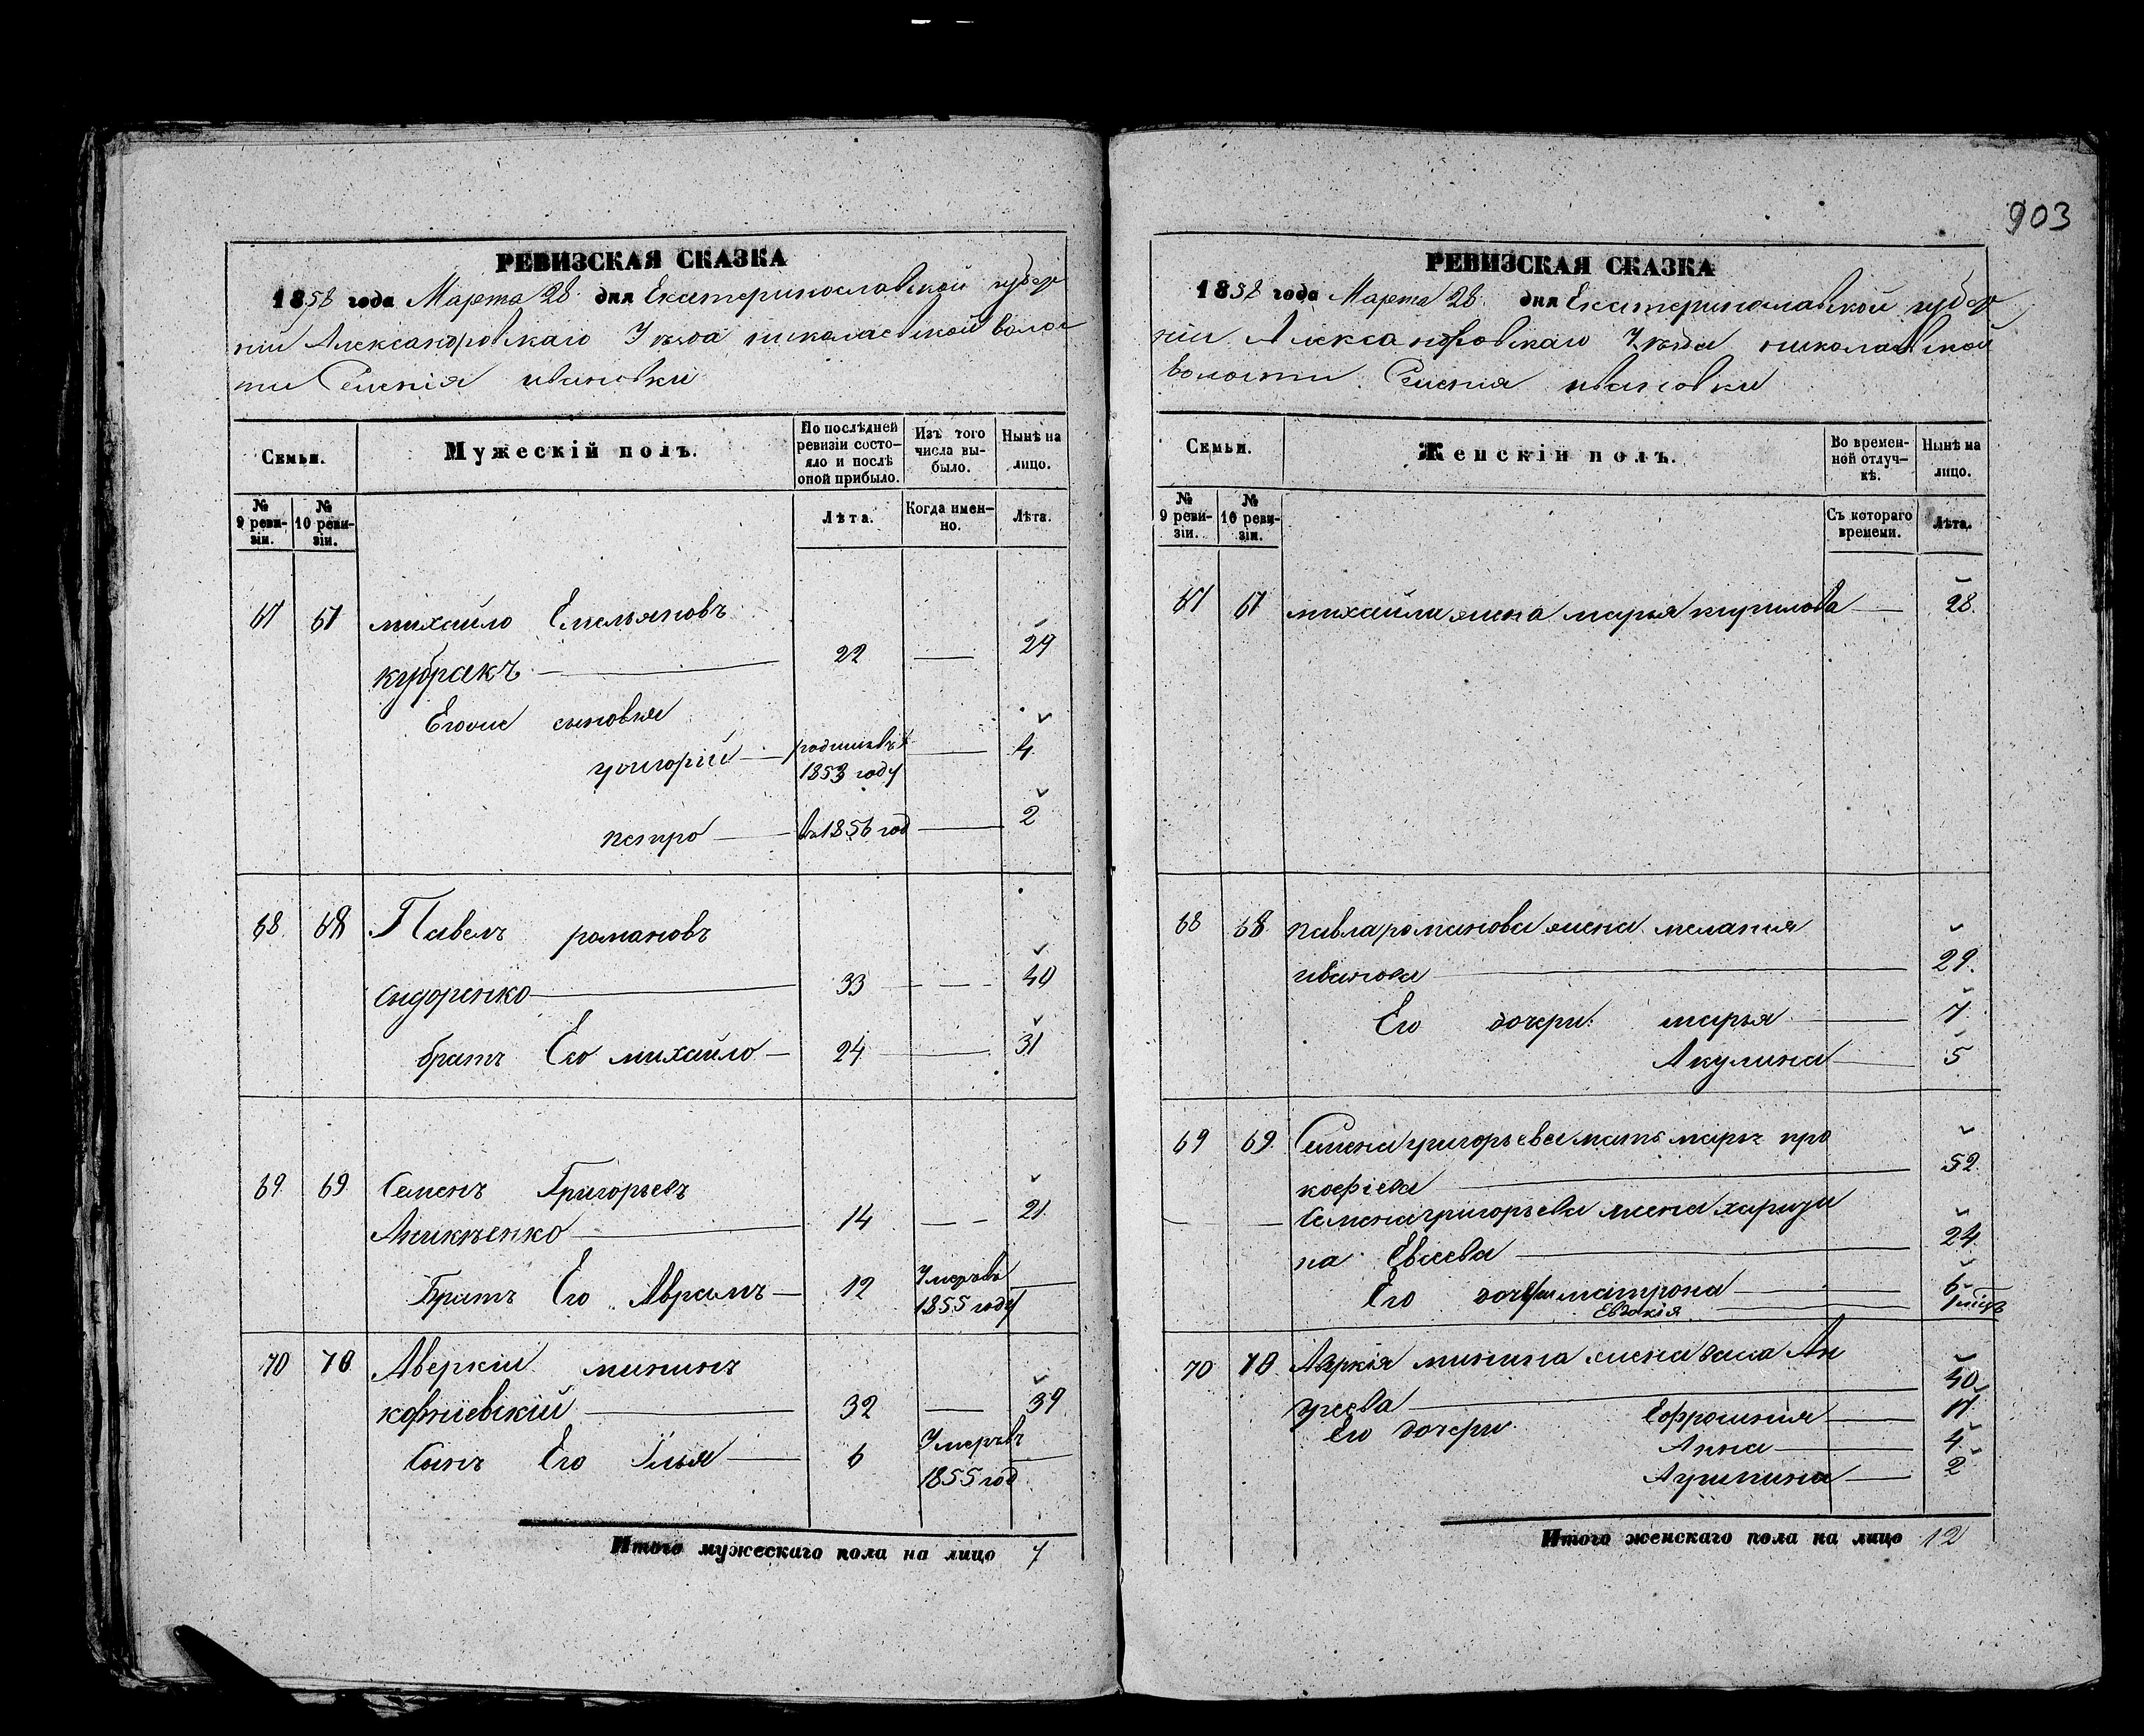 903
РЕВИЗСКАЯ СКАЗКА
1858 года Марта 28 дня Екатеринославской губер
ніи Александровскаго Уезда николаевской волос
ти Селенія ивановки
Семьи.
Мужескій полъ.
По послѣдней ревизіи состо-
яло и послѣ оной прибыло.
Изъ того числа вы-
было.
Нынѣ на лицо.
№ 9 реви-
зіи.
№ 10 реви-
зіи.
Лѣта.
Когда имен-
но.
Лѣта.
67 67 михайло Емельяновъ
кубракъ 22 29
Его сыновья
григорій родился въ 1853 году 4
петро въ 1856 год 2
68. 68 Павелъ романовъ
сидоренко 33 40
братъ Его михайло 24 31
69 69 Семенъ Григорьевъ
14 21
Братъ Его Аврамъ 12 Умеръ въ 1855 году
70 70 Аверкій мининъ
корніевскій 32 39
Сынъ Его Илья 6 Умеръ въ 1855 год
Итого мужескаго пола на лицо 7
РЕВИЗСКАЯ СКАЗКА
1858 года Марта 28 дня Екатеринославской губер
ніи Александровскаго Уезда николаевской
волости Селенія ивановки
Семьи.
Женскій полъ.
Во времен-
ной отлуч-
кѣ.
Нынѣ на лицо.
№ 9 реви-
зіи.
№ 10 реви-
зіи.
Съ котораго времени.
Лѣта.
67 67 михайли жена марья кирилова 28.
68 68 павла романова жена мелания
иванова 29.
Его дочери: марья 7
Акулина 5
69 69. Семена григорьева мать марья про
кофіева 52.
Семена григорьева жена харити
на Евсеева 24
Его дочери матрона 6
Евдокія 1 мѣсц
70 70. Аверкія минина жена васса Ан
дреева 40
Его дочери Ефросиния 11
Анна 4
Агрипина 2
Итого женскаго пола на лицо 12